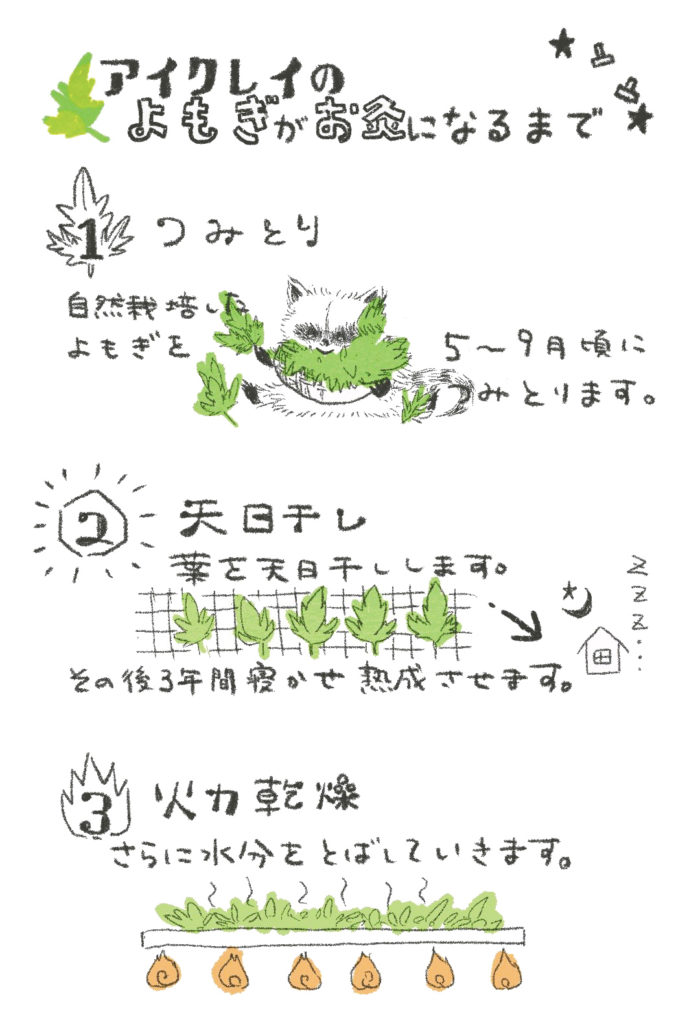 アイクレイの
よもぎがお灸になるまで
1 つみとり
自然栽培した
よもぎを
5〜9月頃に
つみとります。
2 天日干し
葉を天日干しします。
z
z
z
その後3年間寝かせ 熟成させます。
3 火力乾燥
さらに水分をとばしていきます。